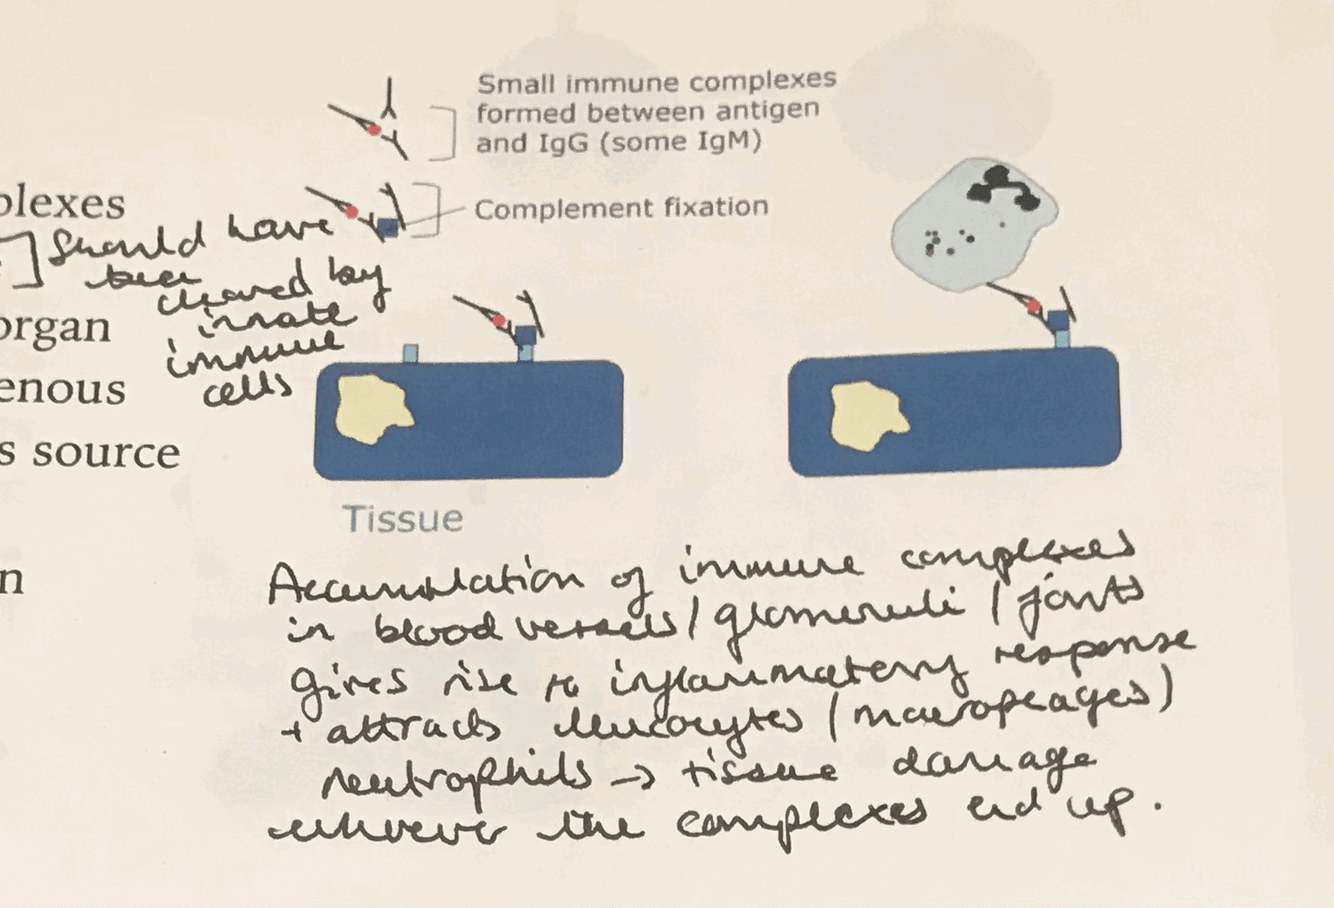 Small immune complexes
formed between antigen
and IgG (some IgM)
Complement fixation
plexes
] should have
been
cleared by
innate
immune
cells
organ
enous
s source
n
Tissue
Accumulation of immune complexes
in blood vessels / glomeruli / joints
gives rise to inflammatory response
+ attracts leucocytes (macrophages)
neutrophils → tissue damage
wherever the complexes end up.